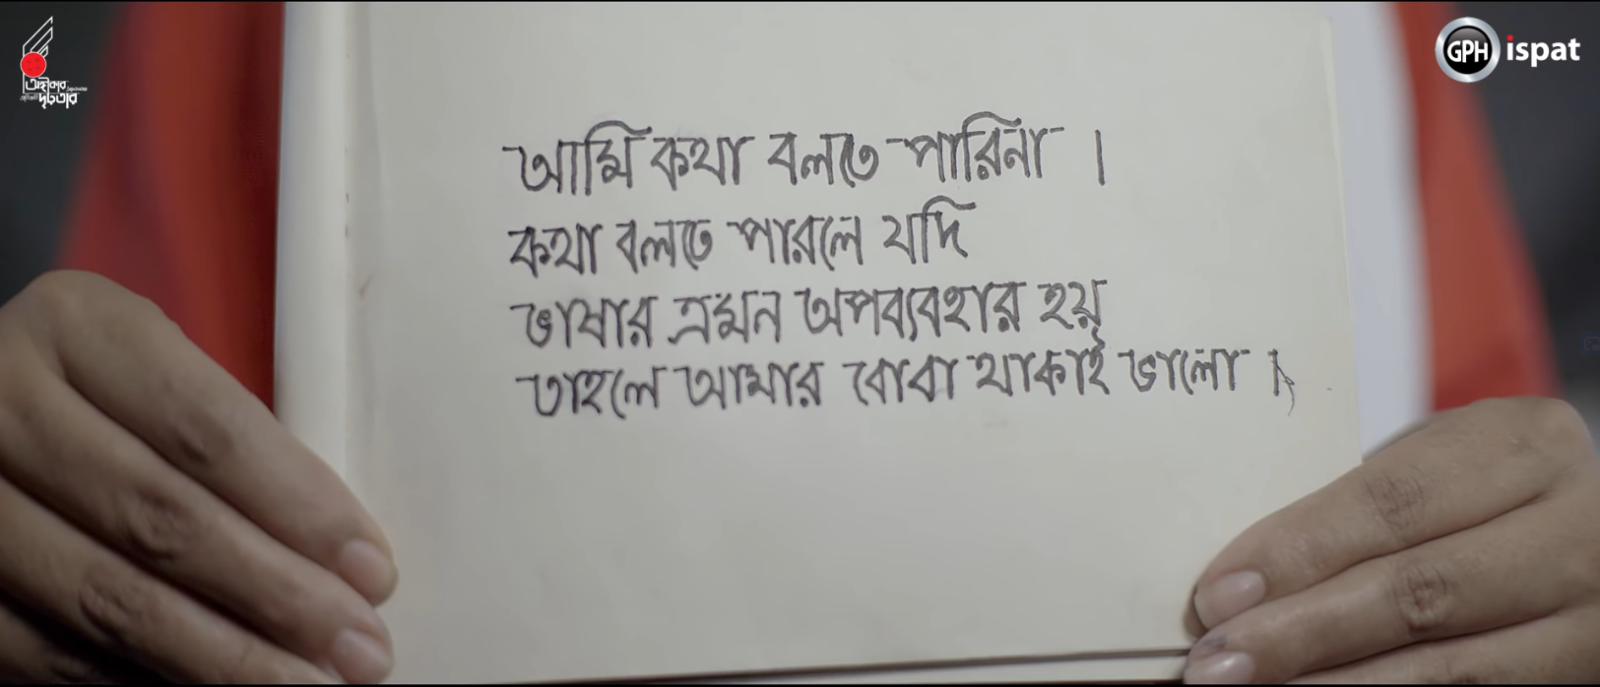 অঙ্গীকার
দৃঢ়তার
GPH ispat
আমি কথা বলতে পারিনা ।
কথা বলতে পারলে যদি
ভাষার এমন অপব্যবহার হয়
তাহলে আমার বোবা থাকাই ভালো ।